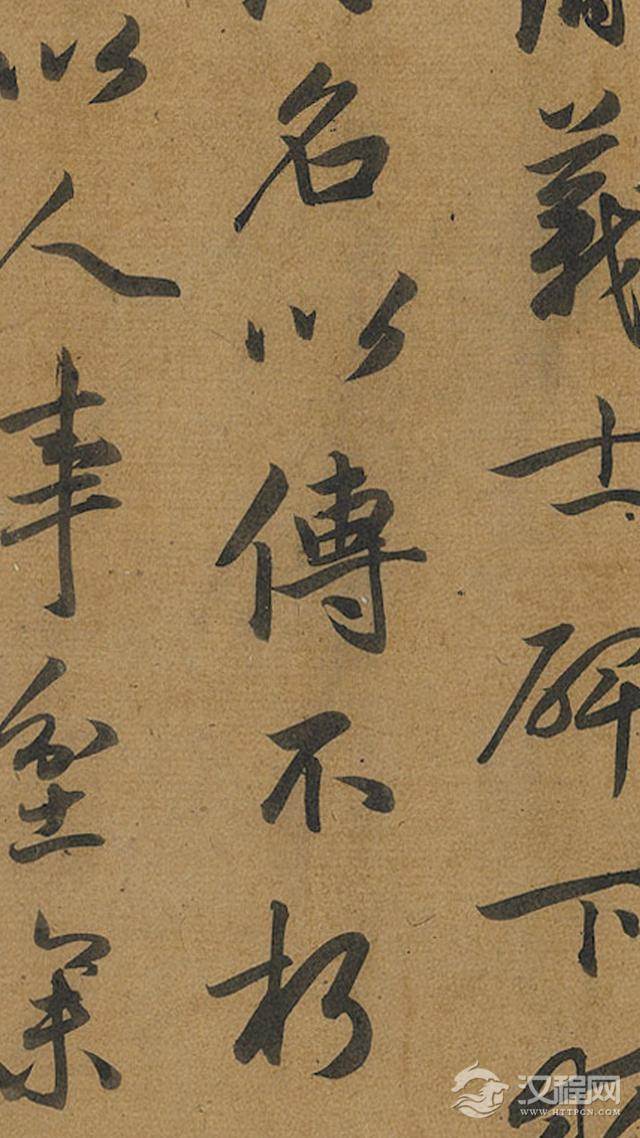 義士碑下
名以傳不朽
以人事
汉程网
WWW.HTTPCN.COM